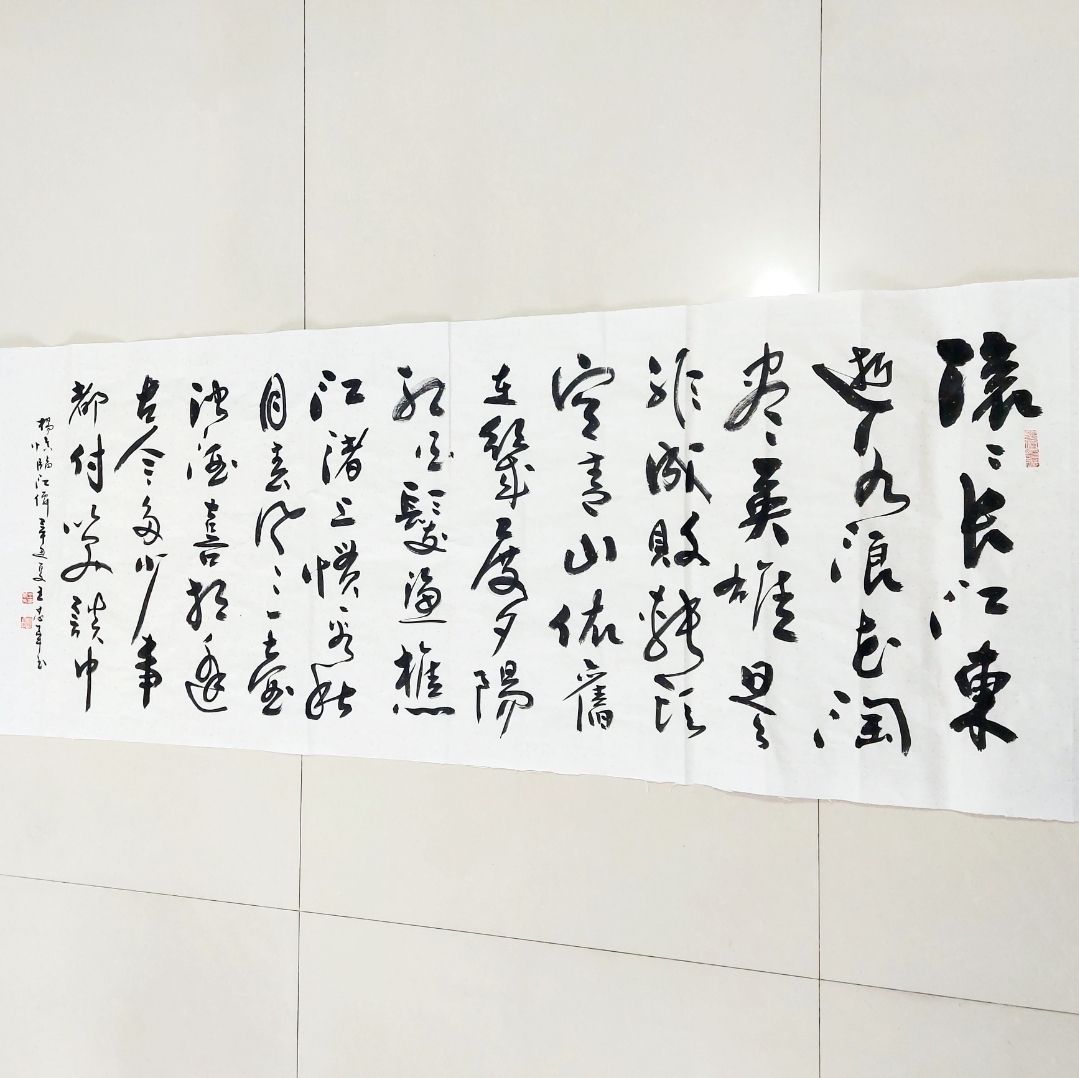 滚〻长江東
逝水浪花淘
尽英雄是
非成敗轉頭
空青山依舊
在幾度夕陽
紅白髮漁樵
江渚上慣看秋
月春風一壺
濁酒喜相逢
古今多少事
都付笑談中
楊慎臨江僊辛丑夏王志軍书